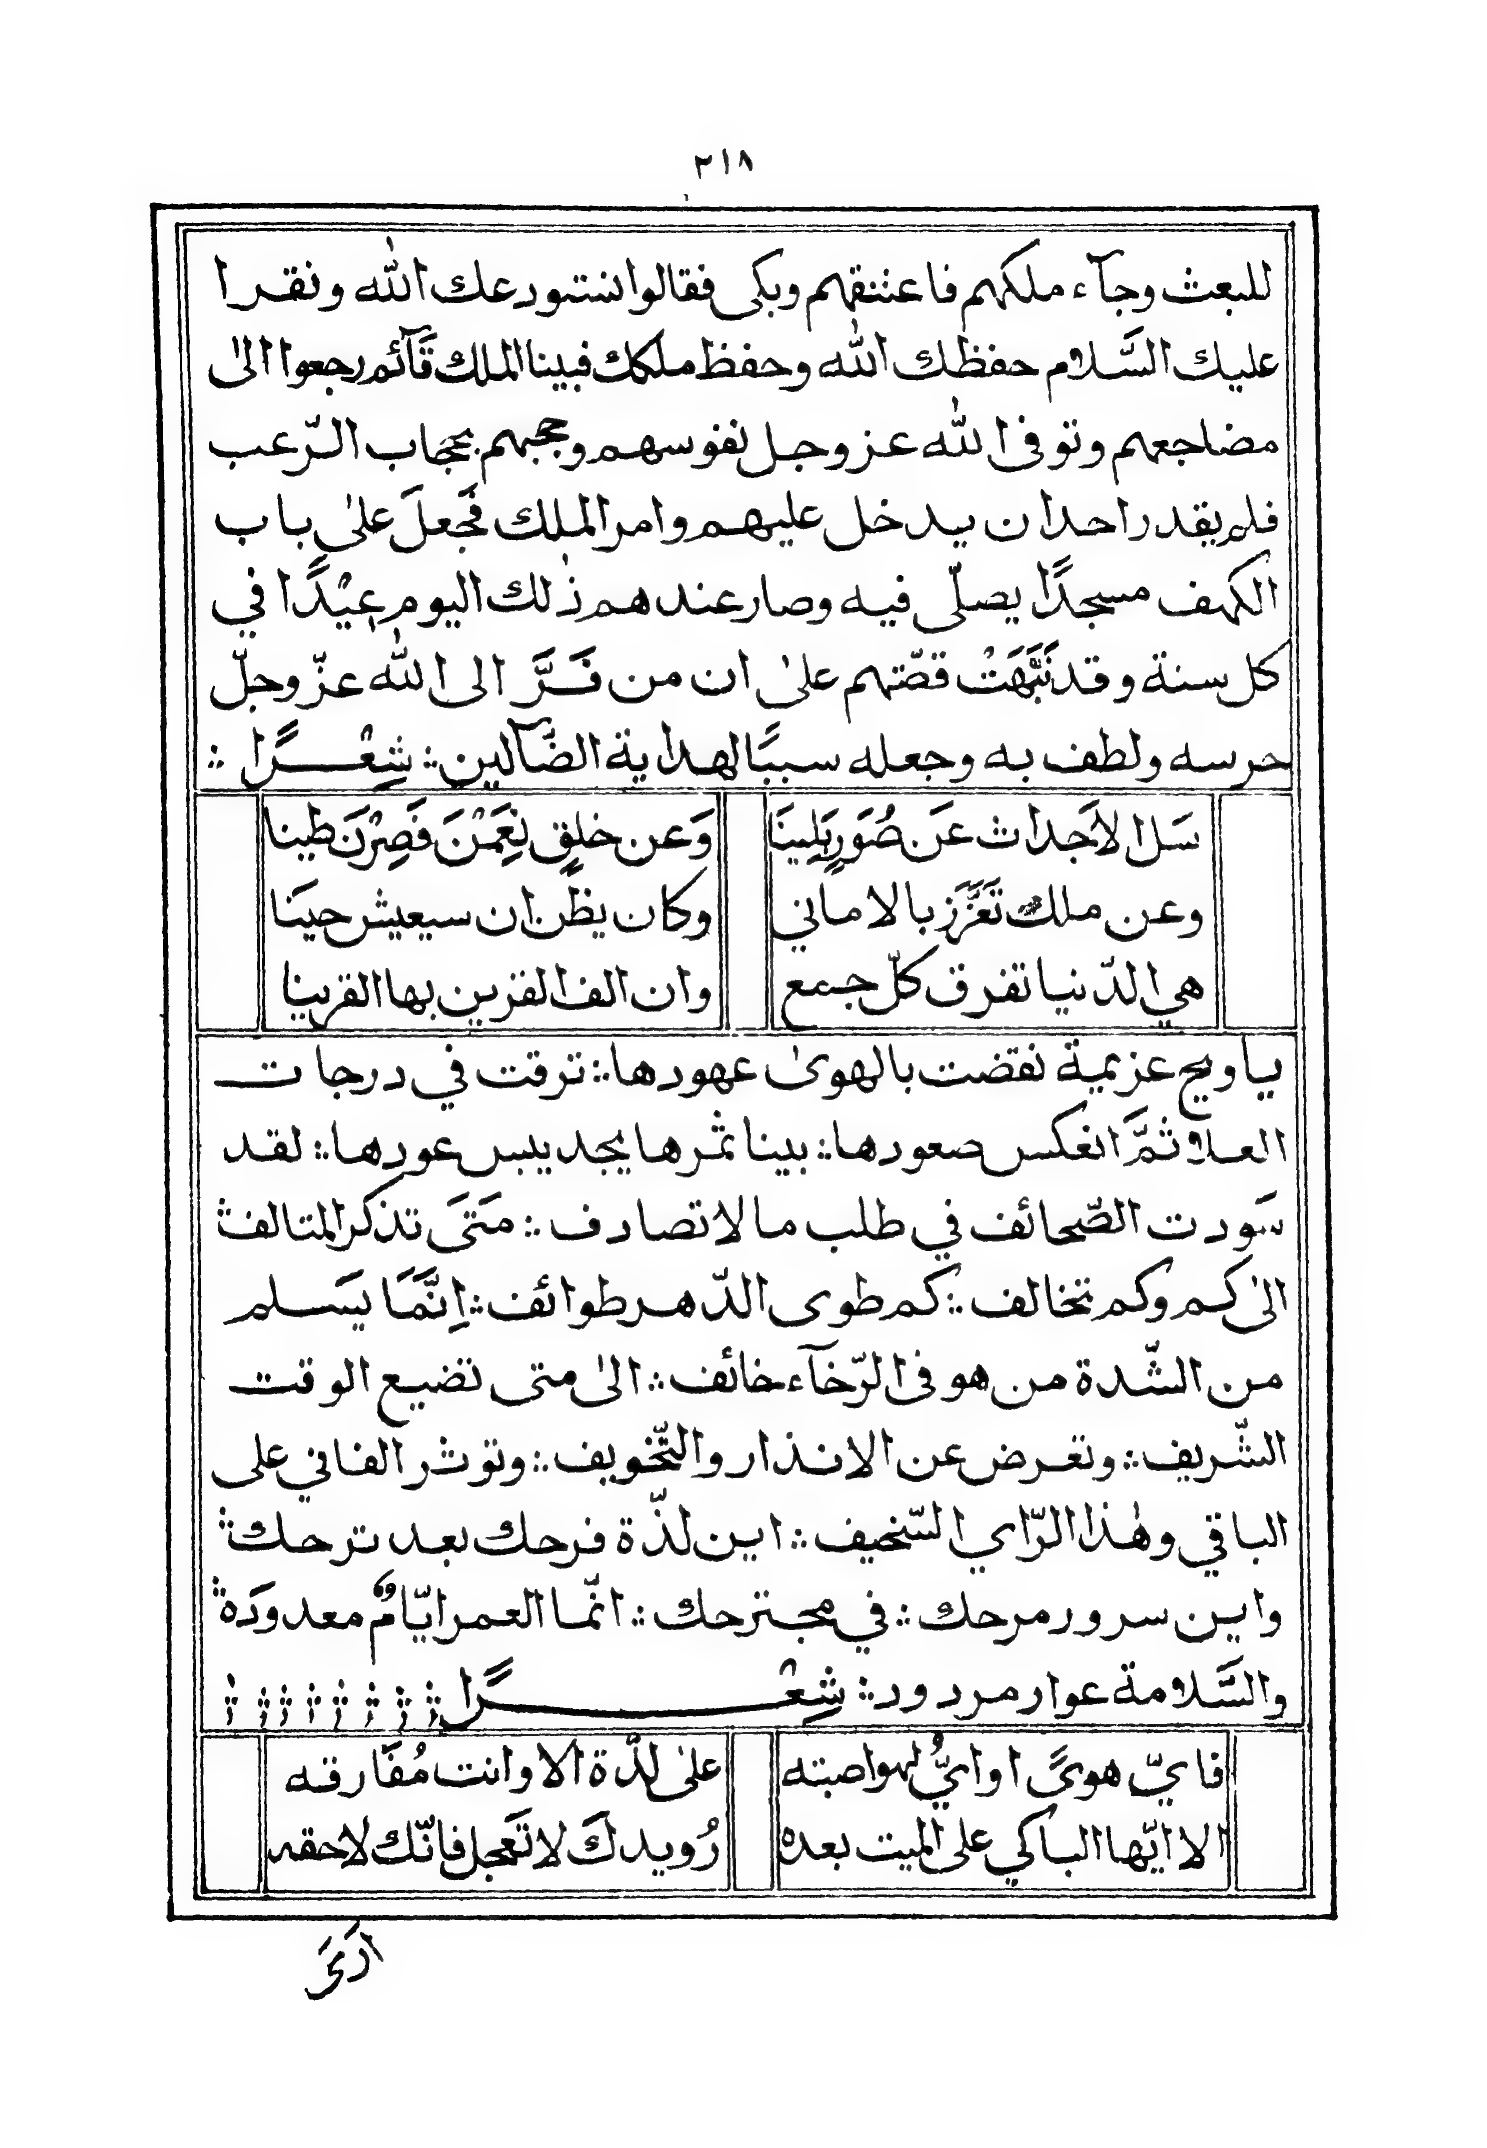 ٢١٨
للبعث وجآء ملكهم فاعتنقهم وبكى فقالوا نستودعك الله ونقرا
عليك السَّلام حفظك الله وحفظ ملكك فبينا الملك قَآئم رجعوا الىٰ
مضاجعهم وتوفى الله عز وجل نفوسهم وحجبهم بحجاب الرّعب
فلم يقدر احد ان يدخل عليهم وامر الملك فَجعلَ علىٰ باب
الكهف مسجدًا يصلّى فيه وصار عندهم ذٰلك اليوم عِيْدًا في
كل سنة وقد نَبَّهَتْ قصّتهم علىٰ ان من فَرَّ الى الله عزّ وجلّ
حرسه ولطف به وجعله سببًا لهداية الضَّآلين ؞ شِعْرًا ؞
سَل الاَجداث عَن صُوَرٍ بَلِينَا
وَعن خلقٍ نَعِمْنَ فَصِرْنَ طينا
وعن ملك تَعَزَّز بالاماني
وكان يظن ان سيعيش حينَا
هي الدّنيا تفرق كلّ جمع
وان الف القرين بها القرينا
يا ويح عزيمة نقضت بالهوىٰ عهودها ؞ ترقت في درجات
العلا ثمَّ انعكس صعودها ؞ بينا ثمرها يجد يبس عودها ؞ لقد
سَودت الصّحائف في طلب ما لا تصادف ؞ مَتَى تذكر المتالف ؞
الىٰ كم وكم تخالف ؞ كم طوى الدّهر طوائف ؞ اِنَّمَا يَسلم
من الشّدة من هو فى الرّخآء خائف ؞ الىٰ متى تضيع الوقت
الشّريف ؞ وتعرض عن الانذار والتّخويف ؞ وتوثر الفاني على
الباقي وهٰذا الرّاي السّخيف ؞ اين لذّة فرحك بعد ترحك ؞
واين سرور مرحك ؞ في مجترحك ؞ انّما العمر ايّامٌ معدودَة ؞
والسَّلامة عوار مردود ؞ شِعْرًا ؞ ؞ ؞ ؞ ؞ ؞ ؞ ؞
فايّ هوىً او ايُّ لهو اصبته
علىٰ لذّة الا وانت مُفَارقه
الا ايّها الباكي على الميت بعده
رُويدكَ لا تَعجل فانّك لاحقه
ارَىَ